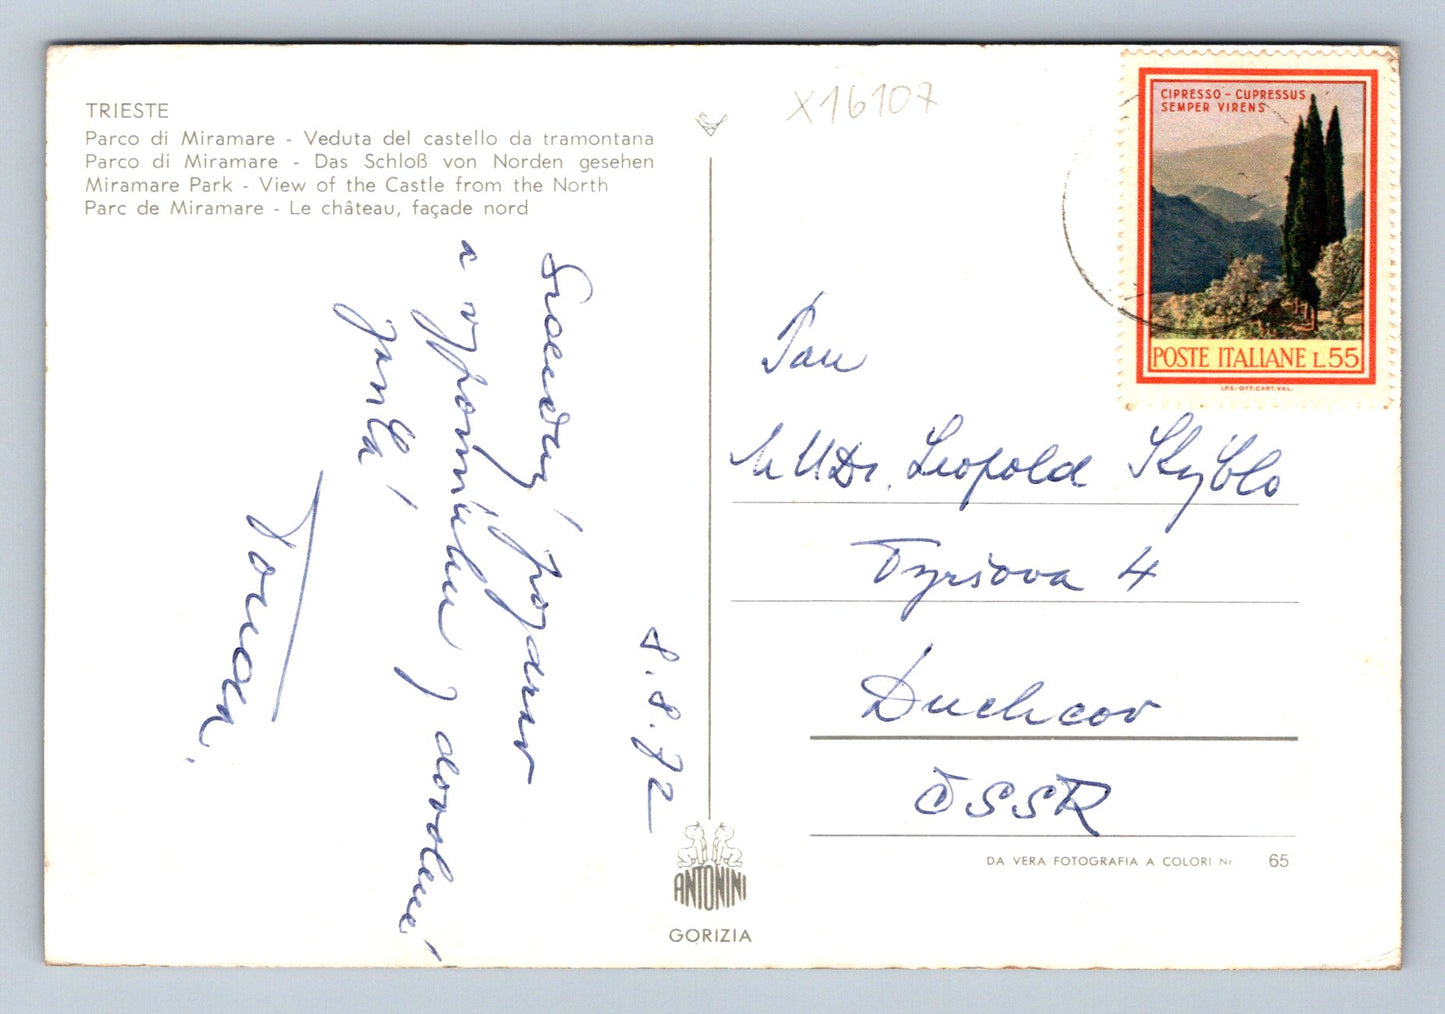 TRIESTE
Parco di Miramare - Veduta del castello da tramontana
Parco di Miramare - Das Schloß von Norden gesehen
Miramare Park - View of the Castle from the North
Parc de Miramare - Le château, façade nord
X16107
CIPRESSO - CUPRESSUS
SEMPER VIRENS
POSTE ITALIANE L.55
I.P.S.-OFF.CART.VAL.
8.8.72
Srdečný pozdrav
a vzpomínku z dovolené
Toman.
Pan
MUDr. Leopold Skýblo
Tyršova 4
Duchcov
ČSSR
DA VERA FOTOGRAFIA A COLORI Nr 65
ANTONINI
GORIZIA